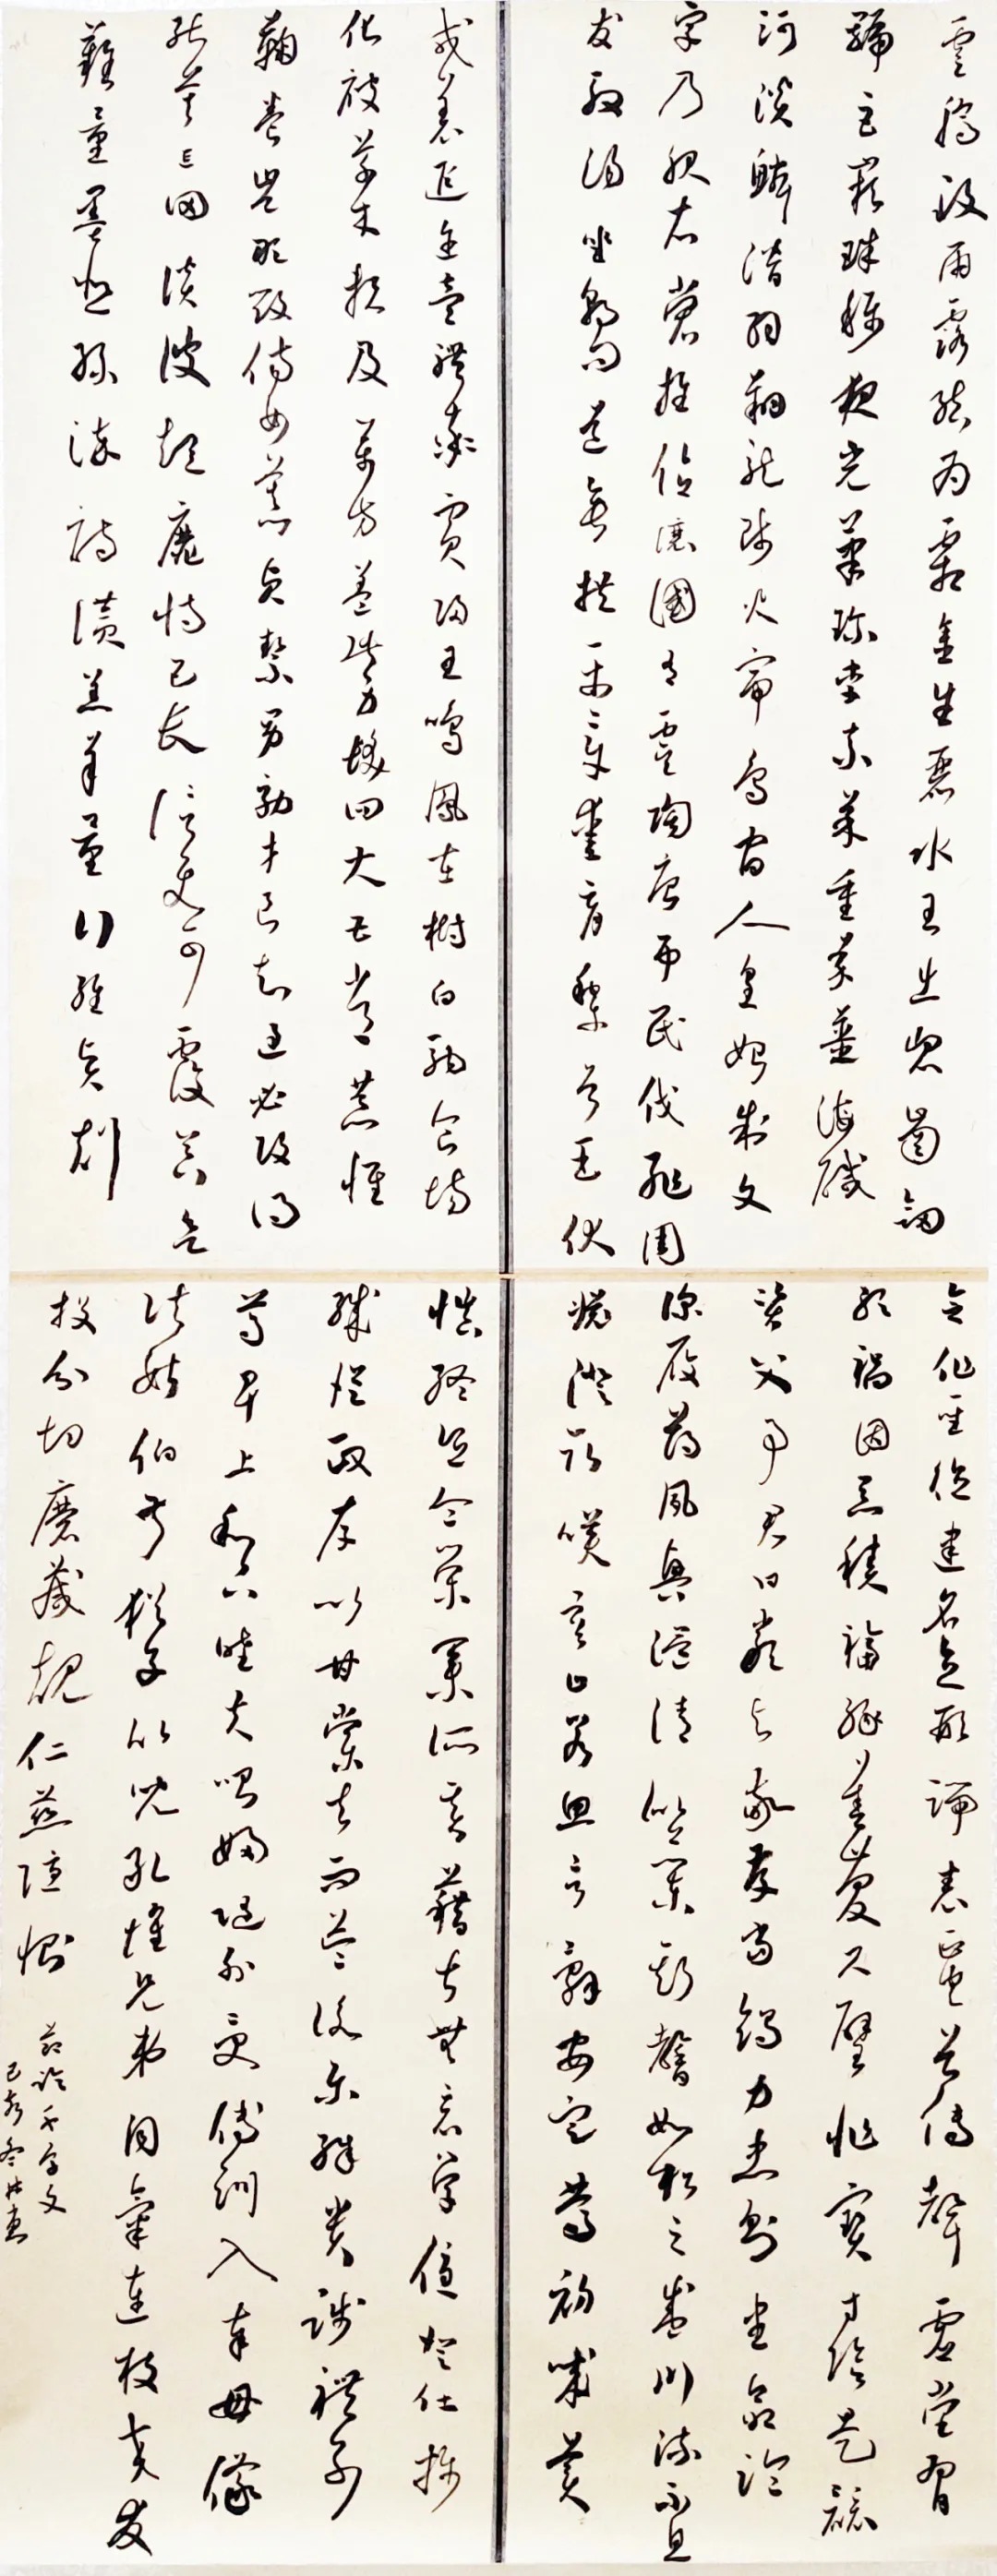 雲騰致雨露結為霜金生麗水玉出崑崗劍
號巨闕珠稱夜光菓珍李柰菜重芥薑海鹹
河淡鱗潛羽翔龍師火帝鳥官人皇始制文
字乃服衣裳推位讓國有虞陶唐弔民伐罪周
發殷湯坐朝問道垂拱平章愛育黎首臣伏
戎羌遐邇壹體率賓歸王鳴鳳在樹白駒食場
化被草木賴及萬方蓋此身髮四大五常恭惟
鞠養豈敢毀傷女慕貞絜男效才良知過必改得
能莫忘罔談彼短靡恃己長信使可覆器欲
難量墨悲絲染詩讚羔羊景行維賢剋
念作聖德建名立形端表正空谷傳聲虛堂習
聽禍因惡積福緣善慶尺璧非寶寸陰是競
資父事君曰嚴與敬孝當竭力忠則盡命臨
深履薄夙興溫清似蘭斯馨如松之盛川流不息
淵澄取映容止若思言辭安定篤初誠美
慎終宜令榮業所基藉甚無竟學優登仕攝
職從政存以甘棠去而益詠樂殊貴賤禮別
尊卑上和下睦夫唱婦隨外受傅訓入奉母儀
諸姑伯叔猶子比兒孔懷兄弟同氣連枝交友
投分切磨箴規仁慈隱惻
節臨千字文
己亥冬